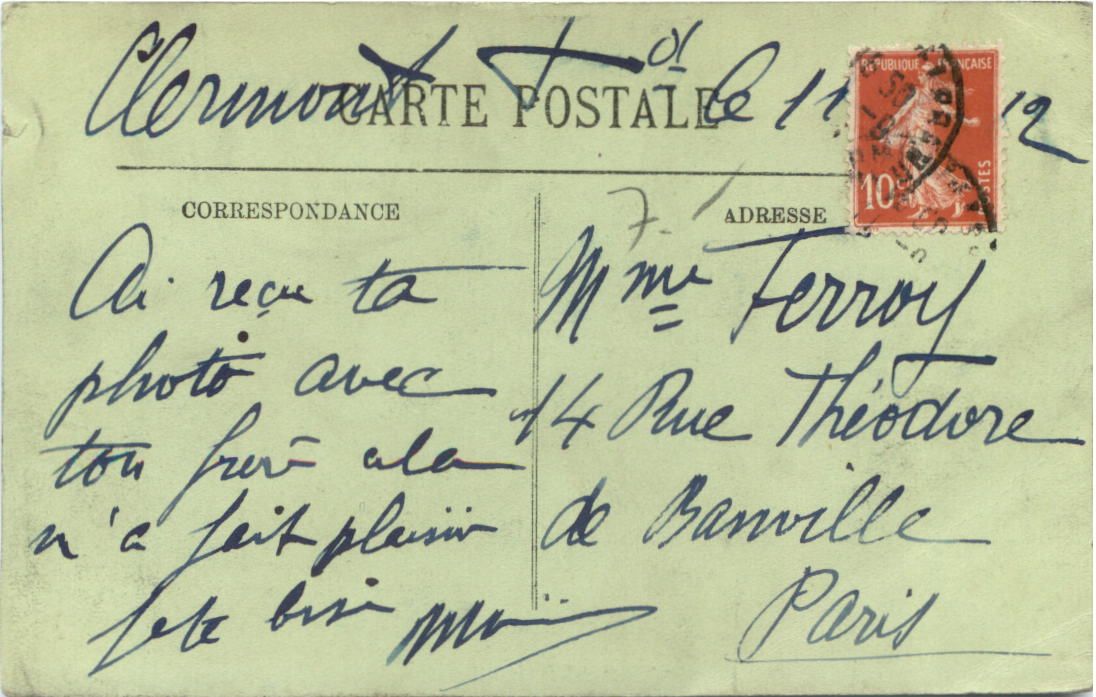 Clermont Fd le 11 12
CARTE POSTALE
REPUBLIQUE FRANÇAISE
10c POSTES
CORRESPONDANCE
7.
ADRESSE
Ai reçu ta
photo avec
ton frère cela
m'a fait plaisir
je te bise
Mme Ferroy
14 Rue Théodore
de Banville
Paris